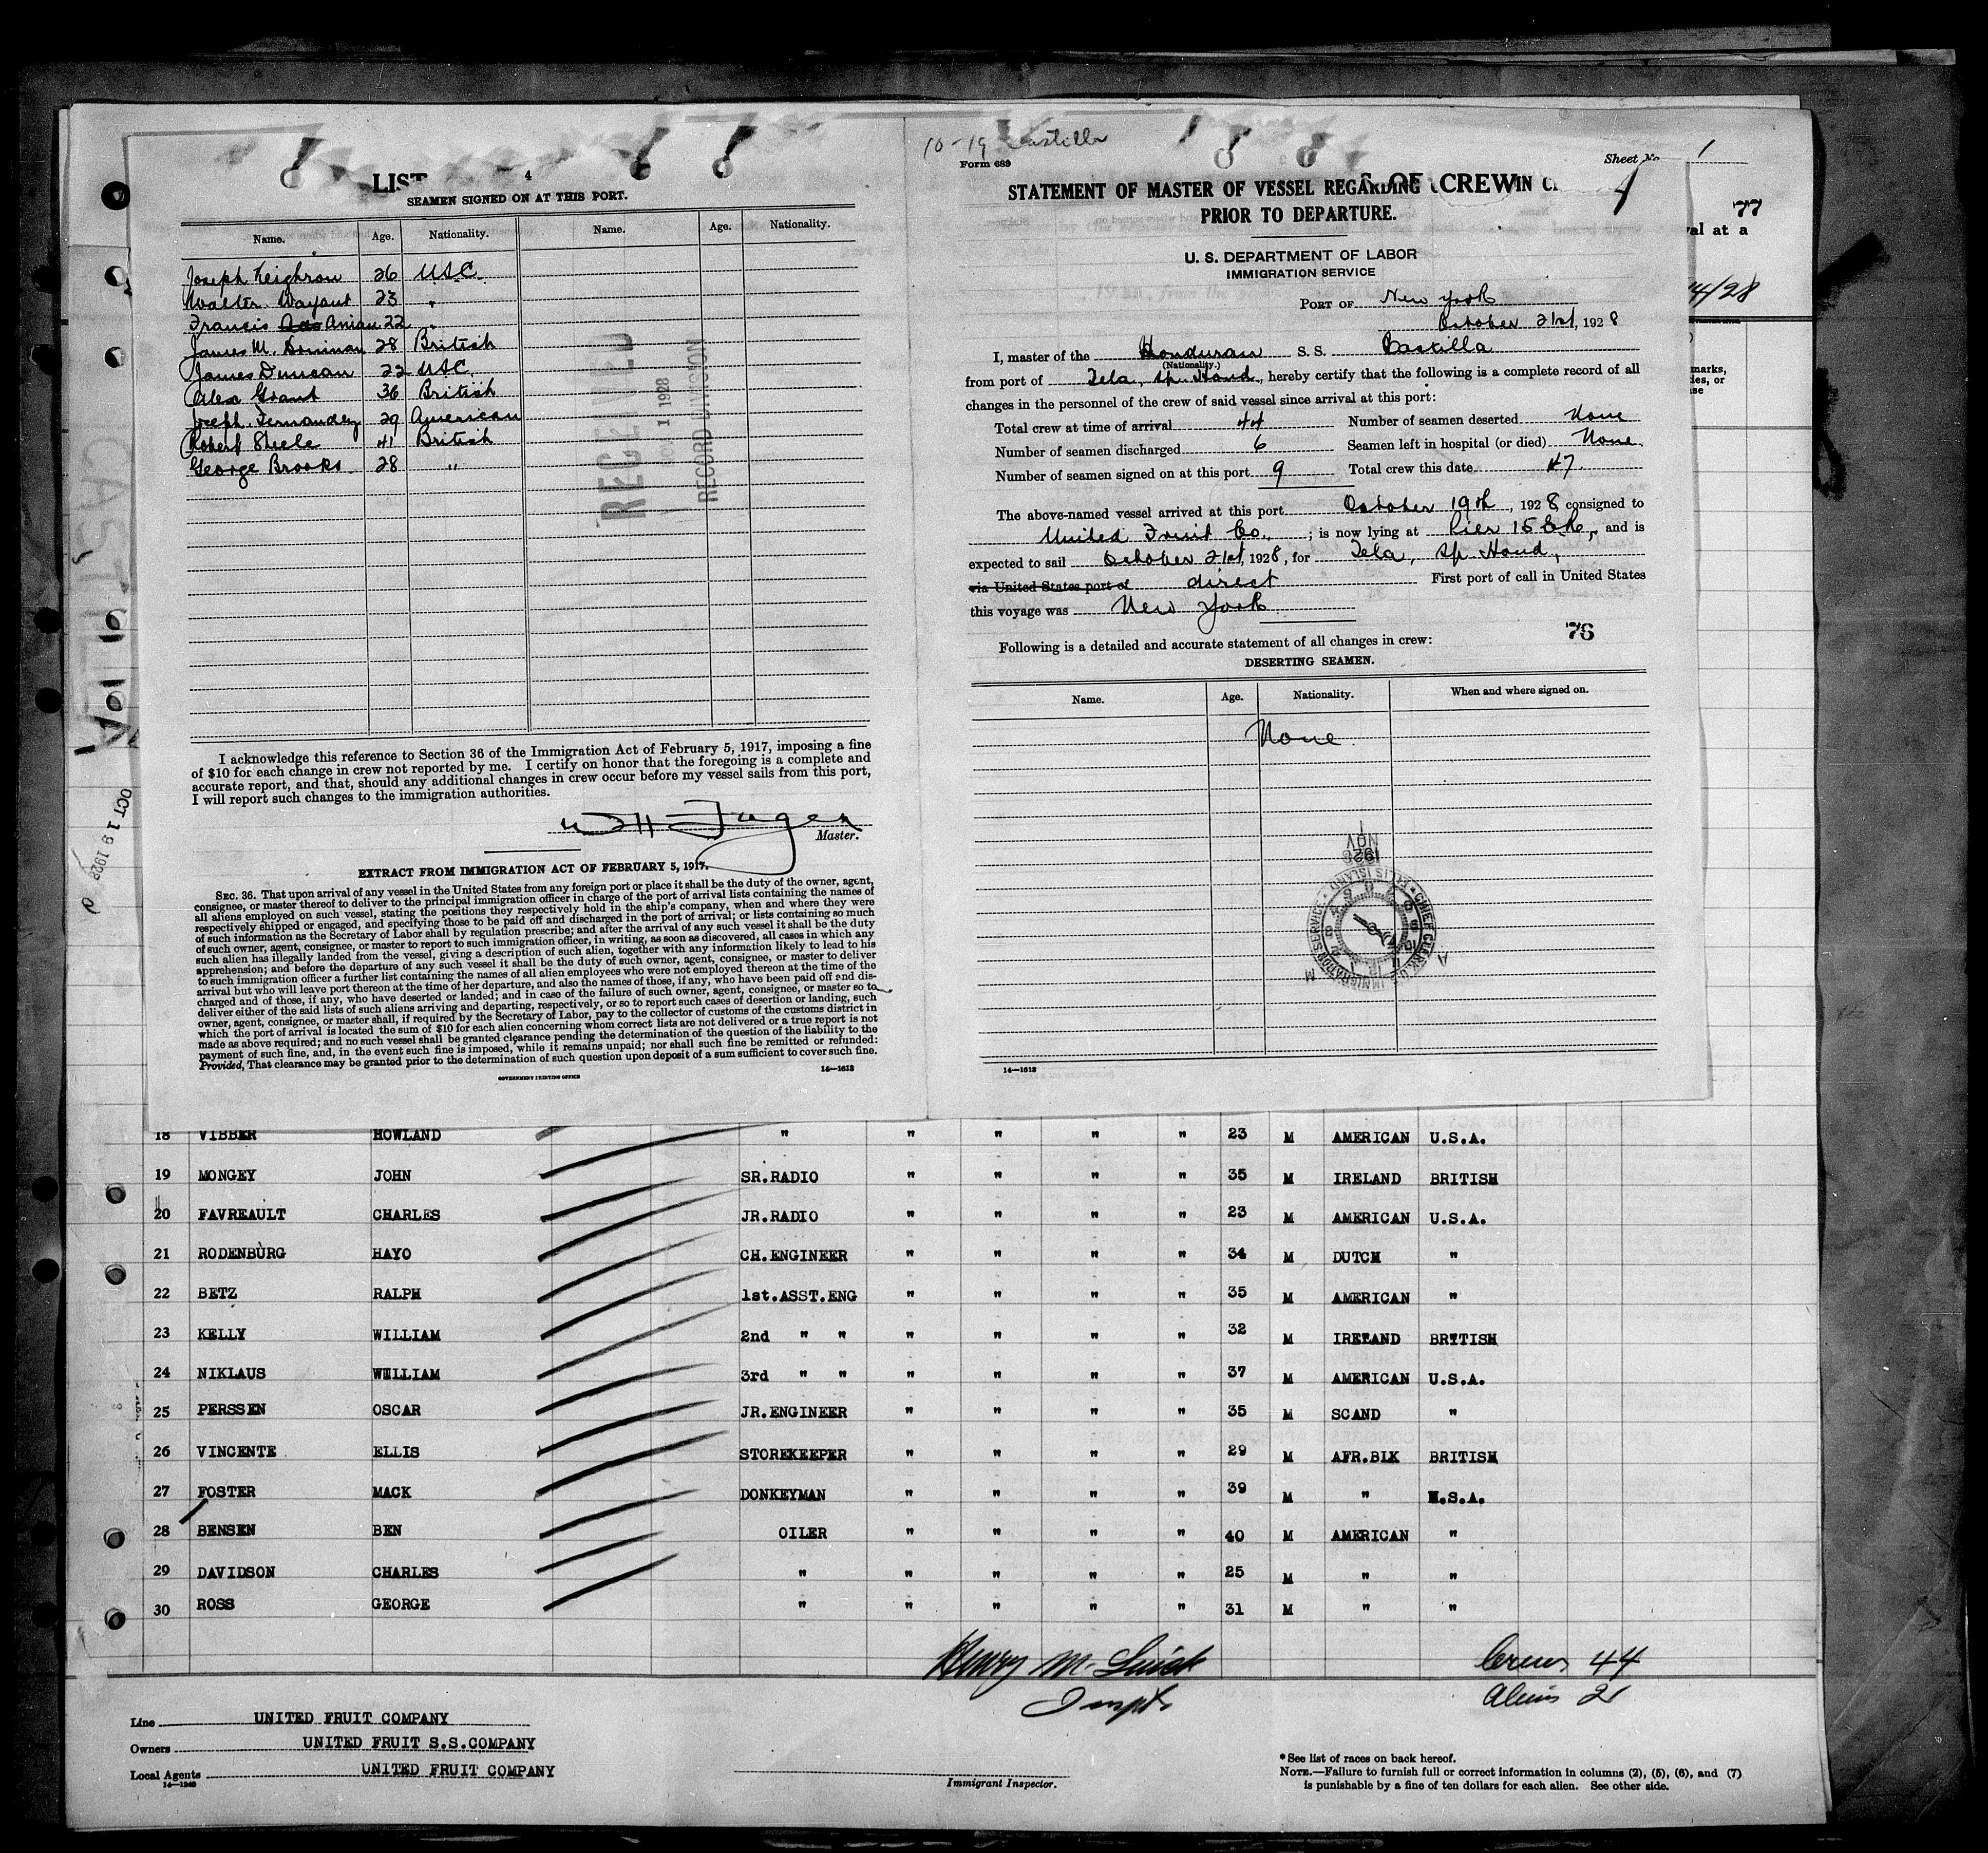 LIST
4
SEAMEN SIGNED ON AT THIS PORT.
Name. Age. Nationality. Name. Age. Nationality.
Joseph Keighron 26 USC
Walter Wayant 23 "
Francis Anian 22 "
James M. 28 British
James Duncan 22 USC
Alex Grant 36 British
Joseph Fernandez 29 American
Robert Steele 41 British
George Brooks 28 "
RECEIVED
NOV 1 1928
RECORD DIVISION
I acknowledge this reference to Section 36 of the Immigration Act of February 5, 1917, imposing a fine
of $10 for each change in crew not reported by me. I certify on honor that the foregoing is a complete and
accurate report, and that, should any additional changes in crew occur before my vessel sails from this port,
I will report such changes to the immigration authorities.
Master.
EXTRACT FROM IMMIGRATION ACT OF FEBRUARY 5, 1917.
SEC. 36. That upon arrival of any vessel in the United States from any foreign port or place it shall be the duty of the owner, agent,
consignee, or master thereof to deliver to the principal immigration officer in charge of the port of arrival lists containing the names of
all aliens employed on such vessel, stating the positions they respectively hold in the ship's company, when and where they were
respectively shipped or engaged, and specifying those to be paid off and discharged in the port of arrival; or lists containing so much
of such information as the Secretary of Labor shall by regulation prescribe; and after the arrival of any such vessel it shall be the duty
of such owner, agent, consignee, or master to report to such immigration officer, in writing, as soon as discovered, all cases in which any
such alien has illegally landed from the vessel, giving a description of such alien, together with any information likely to lead to his
apprehension; and before the departure of any such vessel it shall be the duty of such owner, agent, consignee, or master to deliver
to such immigration officer a further list containing the names of all alien employees who were not employed thereon at the time of the
arrival but who will leave port thereon at the time of her departure, and also the names of those, if any, who have been paid off and dis-
charged and of those, if any, who have deserted or landed; and in case of the failure of such owner, agent, consignee, or master so to
deliver either of the said lists of such aliens arriving and departing, respectively, or so to report such cases of desertion or landing, such
owner, agent, consignee, or master shall, if required by the Secretary of Labor, pay to the collector of customs of the customs district in
which the port of arrival is located the sum of $10 for each alien concerning whom correct lists are not delivered or a true report is not
made as above required; and no such vessel shall be granted clearance pending the determination of the question of the liability to the
payment of such fine, and, in the event such fine is imposed, while it remains unpaid; nor shall such fine be remitted or refunded:
Provided, That clearance may be granted prior to the determination of such question upon deposit of a sum sufficient to cover such fine.
GOVERNMENT PRINTING OFFICE 14—1613
10-19 Castilla
Form 689
Sheet No. 1
STATEMENT OF MASTER OF VESSEL REGARDING OF CREW IN
PRIOR TO DEPARTURE.
U. S. DEPARTMENT OF LABOR
IMMIGRATION SERVICE
PORT OF New York
October 21st, 1928
I, master of the Honduran S. S. Castilla
(Nationality.)
from port of Tela, Sp. Hond., hereby certify that the following is a complete record of all
changes in the personnel of the crew of said vessel since arrival at this port:
Total crew at time of arrival 44 Number of seamen deserted None
Number of seamen discharged 6 Seamen left in hospital (or died) None
Number of seamen signed on at this port 9 Total crew this date 47
The above-named vessel arrived at this port October 19th, 1928, consigned to
United Fruit Co.; is now lying at Pier 15 E.R., and is
expected to sail October 21st, 1928, for Tela, Sp. Hond,
via United States port of direct First port of call in United States
this voyage was New York
76
Following is a detailed and accurate statement of all changes in crew:
DESERTING SEAMEN.
Name. Age. Nationality. When and where signed on.
None
1928
NOV
1
CHIEF CLERK, U.S. IMMIGRATION SERVICE
ELLIS ISLAND
14—1613
77
val at a
4/28
marks,
ies, or
se
CASTILLA
OCT 19 1928
18 VIBBER HOWLAND " " " " " 23 M AMERICAN U.S.A.
19 MONGEY JOHN SR.RADIO " " " " 35 M IRELAND BRITISH
20 FAVREAULT CHARLES JR.RADIO " " " " 23 M AMERICAN U.S.A.
21 RODENBURG HAYO CH.ENGINEER " " " " 34 M DUTCH "
22 BETZ RALPH 1st.ASST.ENG " " " " 35 M AMERICAN "
23 KELLY WILLIAM 2nd " " " " " " 32 M IRELAND BRITISH
24 NIKLAUS WILLIAM 3rd " " " " " " 37 M AMERICAN U.S.A.
25 PERSSEN OSCAR JR.ENGINEER " " " " 35 M SCAND "
26 VINCENTE ELLIS STOREKEEPER " " " " 29 M AFR.BLK BRITISH
27 FOSTER MACK DONKEYMAN " " " " 39 M " U.S.A.
28 BENSEN BEN OILER " " " " 40 M AMERICAN "
29 DAVIDSON CHARLES " " " " " 25 M " "
30 ROSS GEORGE " " " " " 31 M " "
Crew 44
Aliens 21
Line UNITED FRUIT COMPANY
Owners UNITED FRUIT S.S.COMPANY
Local Agents UNITED FRUIT COMPANY
14—1240
Immigrant Inspector.
*See list of races on back hereof.
NOTE.—Failure to furnish full or correct information in columns (2), (5), (6), and (7)
is punishable by a fine of ten dollars for each alien. See other side.